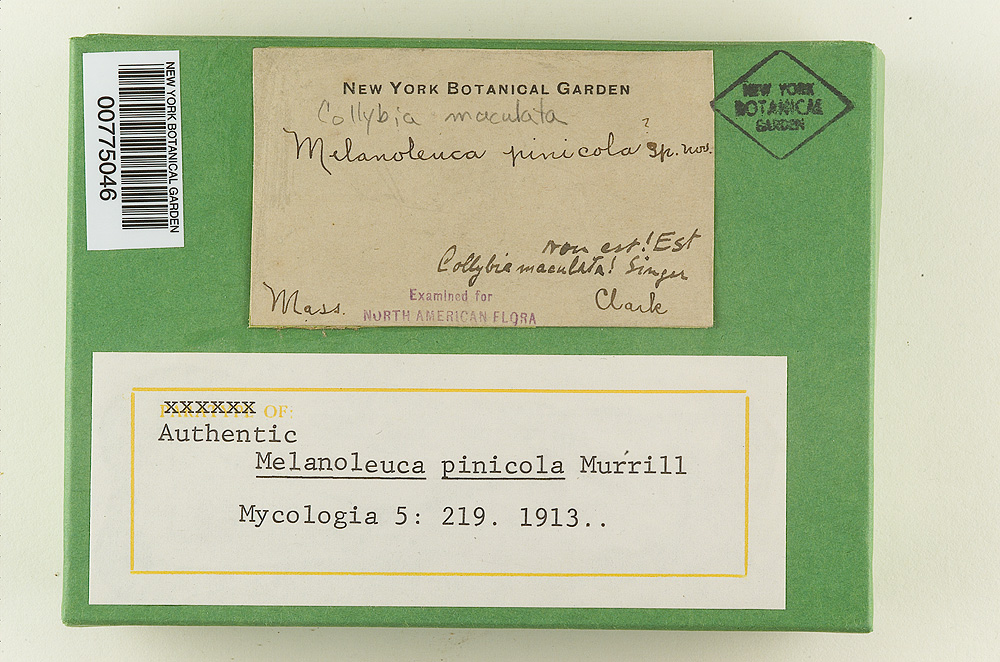 NEW YORK BOTANICAL GARDEN
00775046
NEW YORK BOTANICAL GARDEN
Collybia maculata
Melanoleuca pinicola ? sp. nov.
non est! Est
Collybia maculata! Singer
Mass.
Clark
Examined for
NORTH AMERICAN FLORA
NEW YORK
BOTANICAL
GARDEN
xxxxxx OF:
Authentic
Melanoleuca pinicola Murrill
Mycologia 5: 219. 1913..